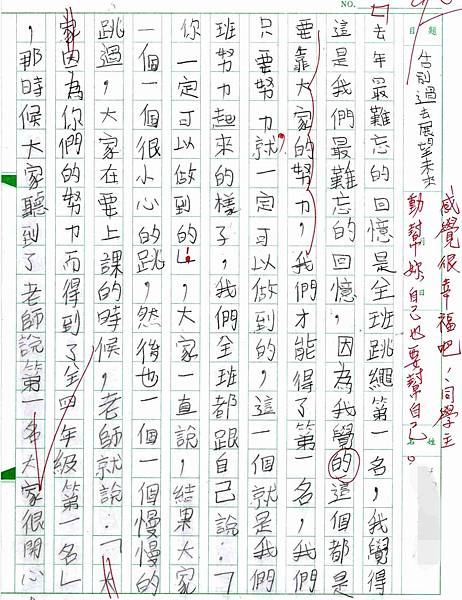 NO.
題目
告別過去展望未來
日
姓名
感覺很幸福吧！同學主
動幫妳自己也要幫自己。
去年最難忘的回憶是全班跳繩第一名，我覺得
這是我們最難忘的回憶，因為我覺的這個都是
要靠大家的努力，我們才能得了第一名，我們
只要努力就一定可以做到的，這一個就是我們
班努力起來的樣子，我們全班都跟自己說：「
你一定可以做到的！」，大家一直說，結果大家
一個一個很小心的跳，然後也一個一個慢慢的
跳過，大家在要上課的時候，老師就說：「大
家因為你們的努力而得到了全四年級第一名」
，那時候大家聽到了老師說第一名大家很開心